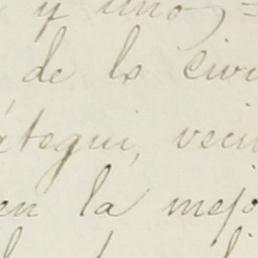 y uno,=
de lo Civi
átegui, veci
en la mejo